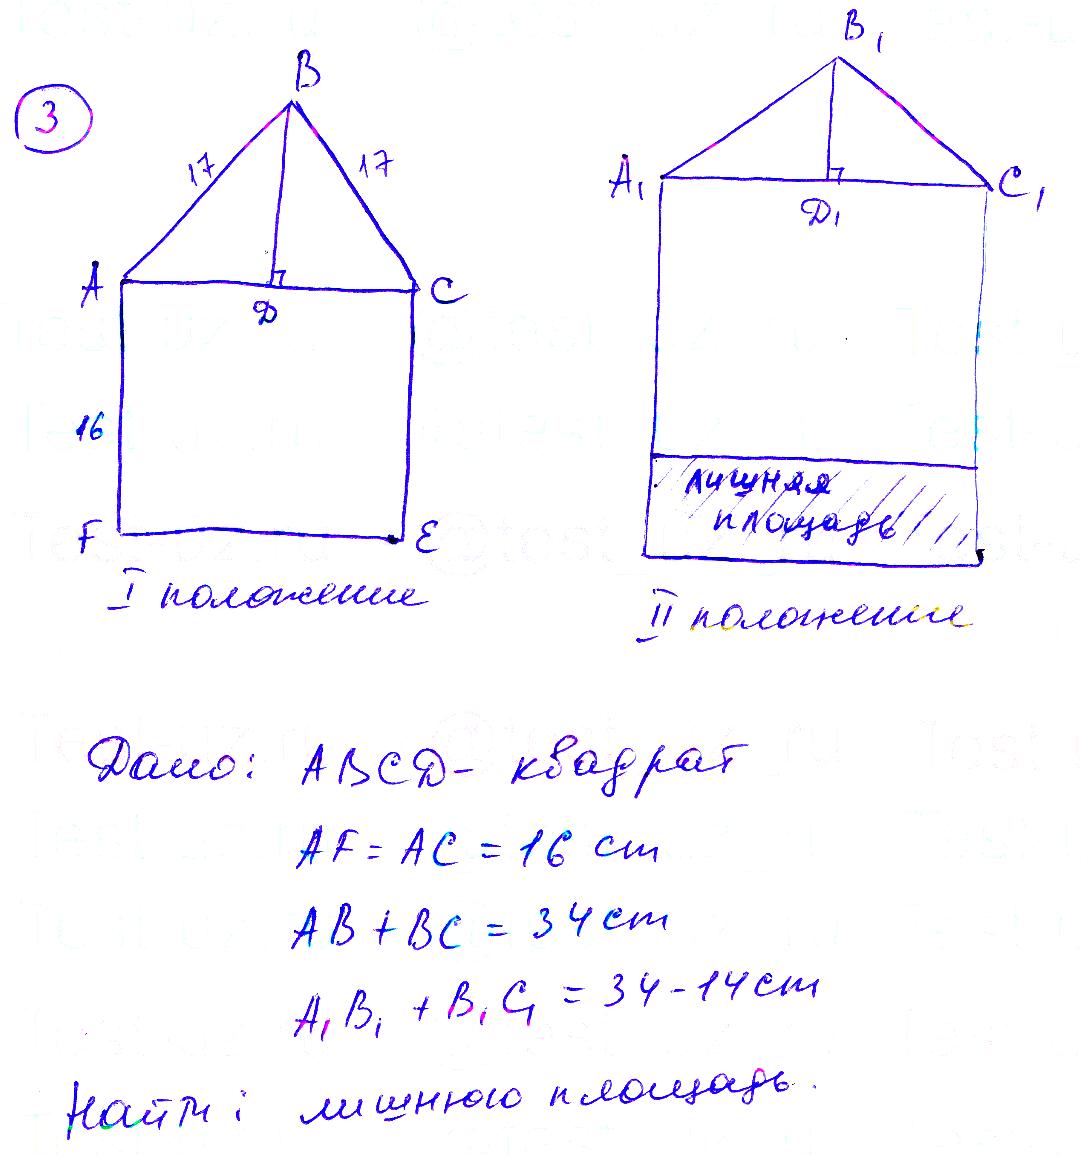 3
B
17
17
A
C
D
16
F
E
I положение
B1
A1
C1
D1
лишняя
площадь
II положение
Дано: ABCD - квадрат
AF = AC = 16 cm
AB + BC = 34 cm
A1B1 + B1C1 = 34 - 14 cm
Найти: лишнюю площадь.